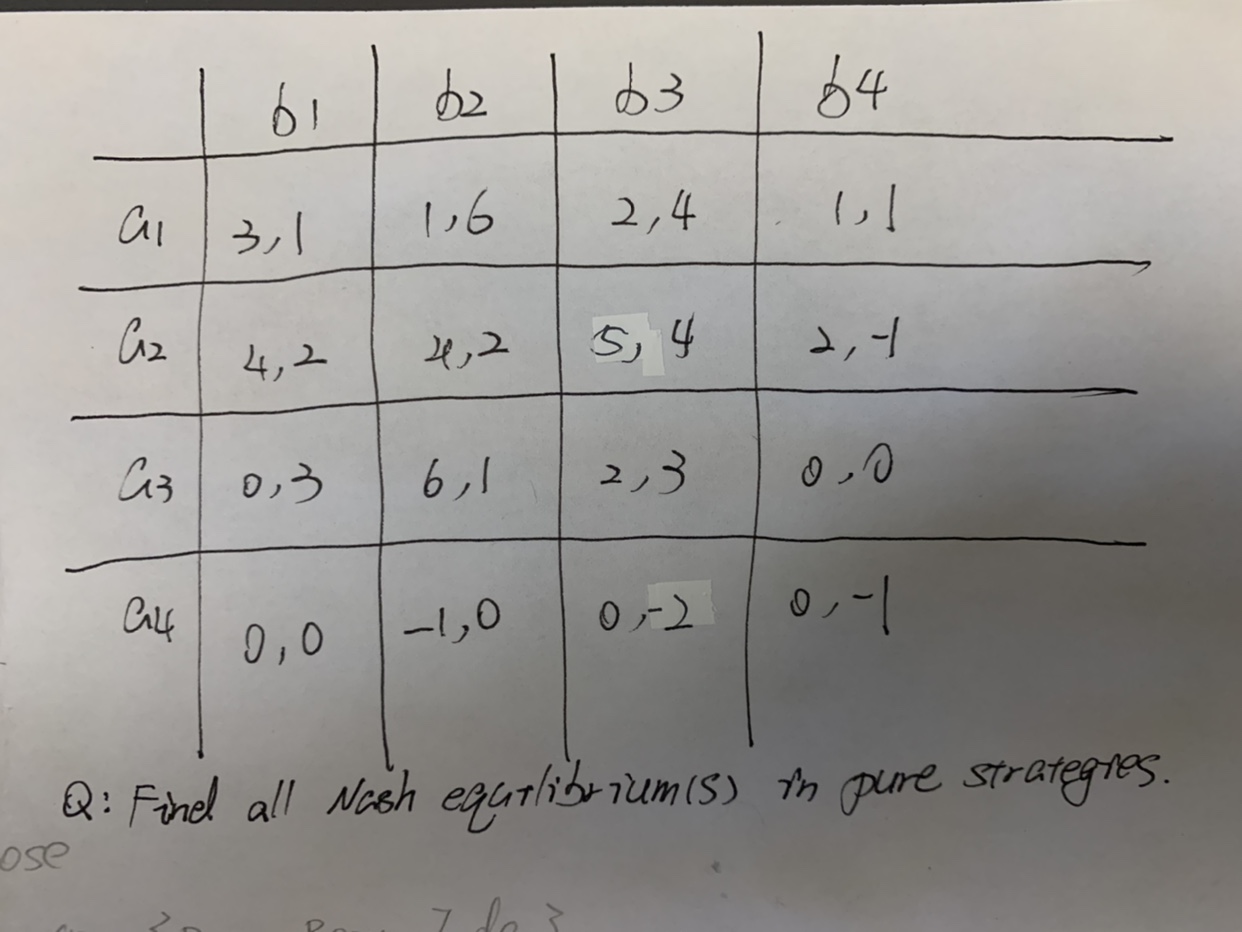 b1 b2 b3 b4
a1 3,1 1,6 2,4 1,1
a2 4,2 4,2 5,4 2,-1
a3 0,3 6,1 2,3 0,0
a4 0,0 -1,0 0,-2 0,-1
Q: Find all Nash equilibrium(s) in pure strategies.
ose